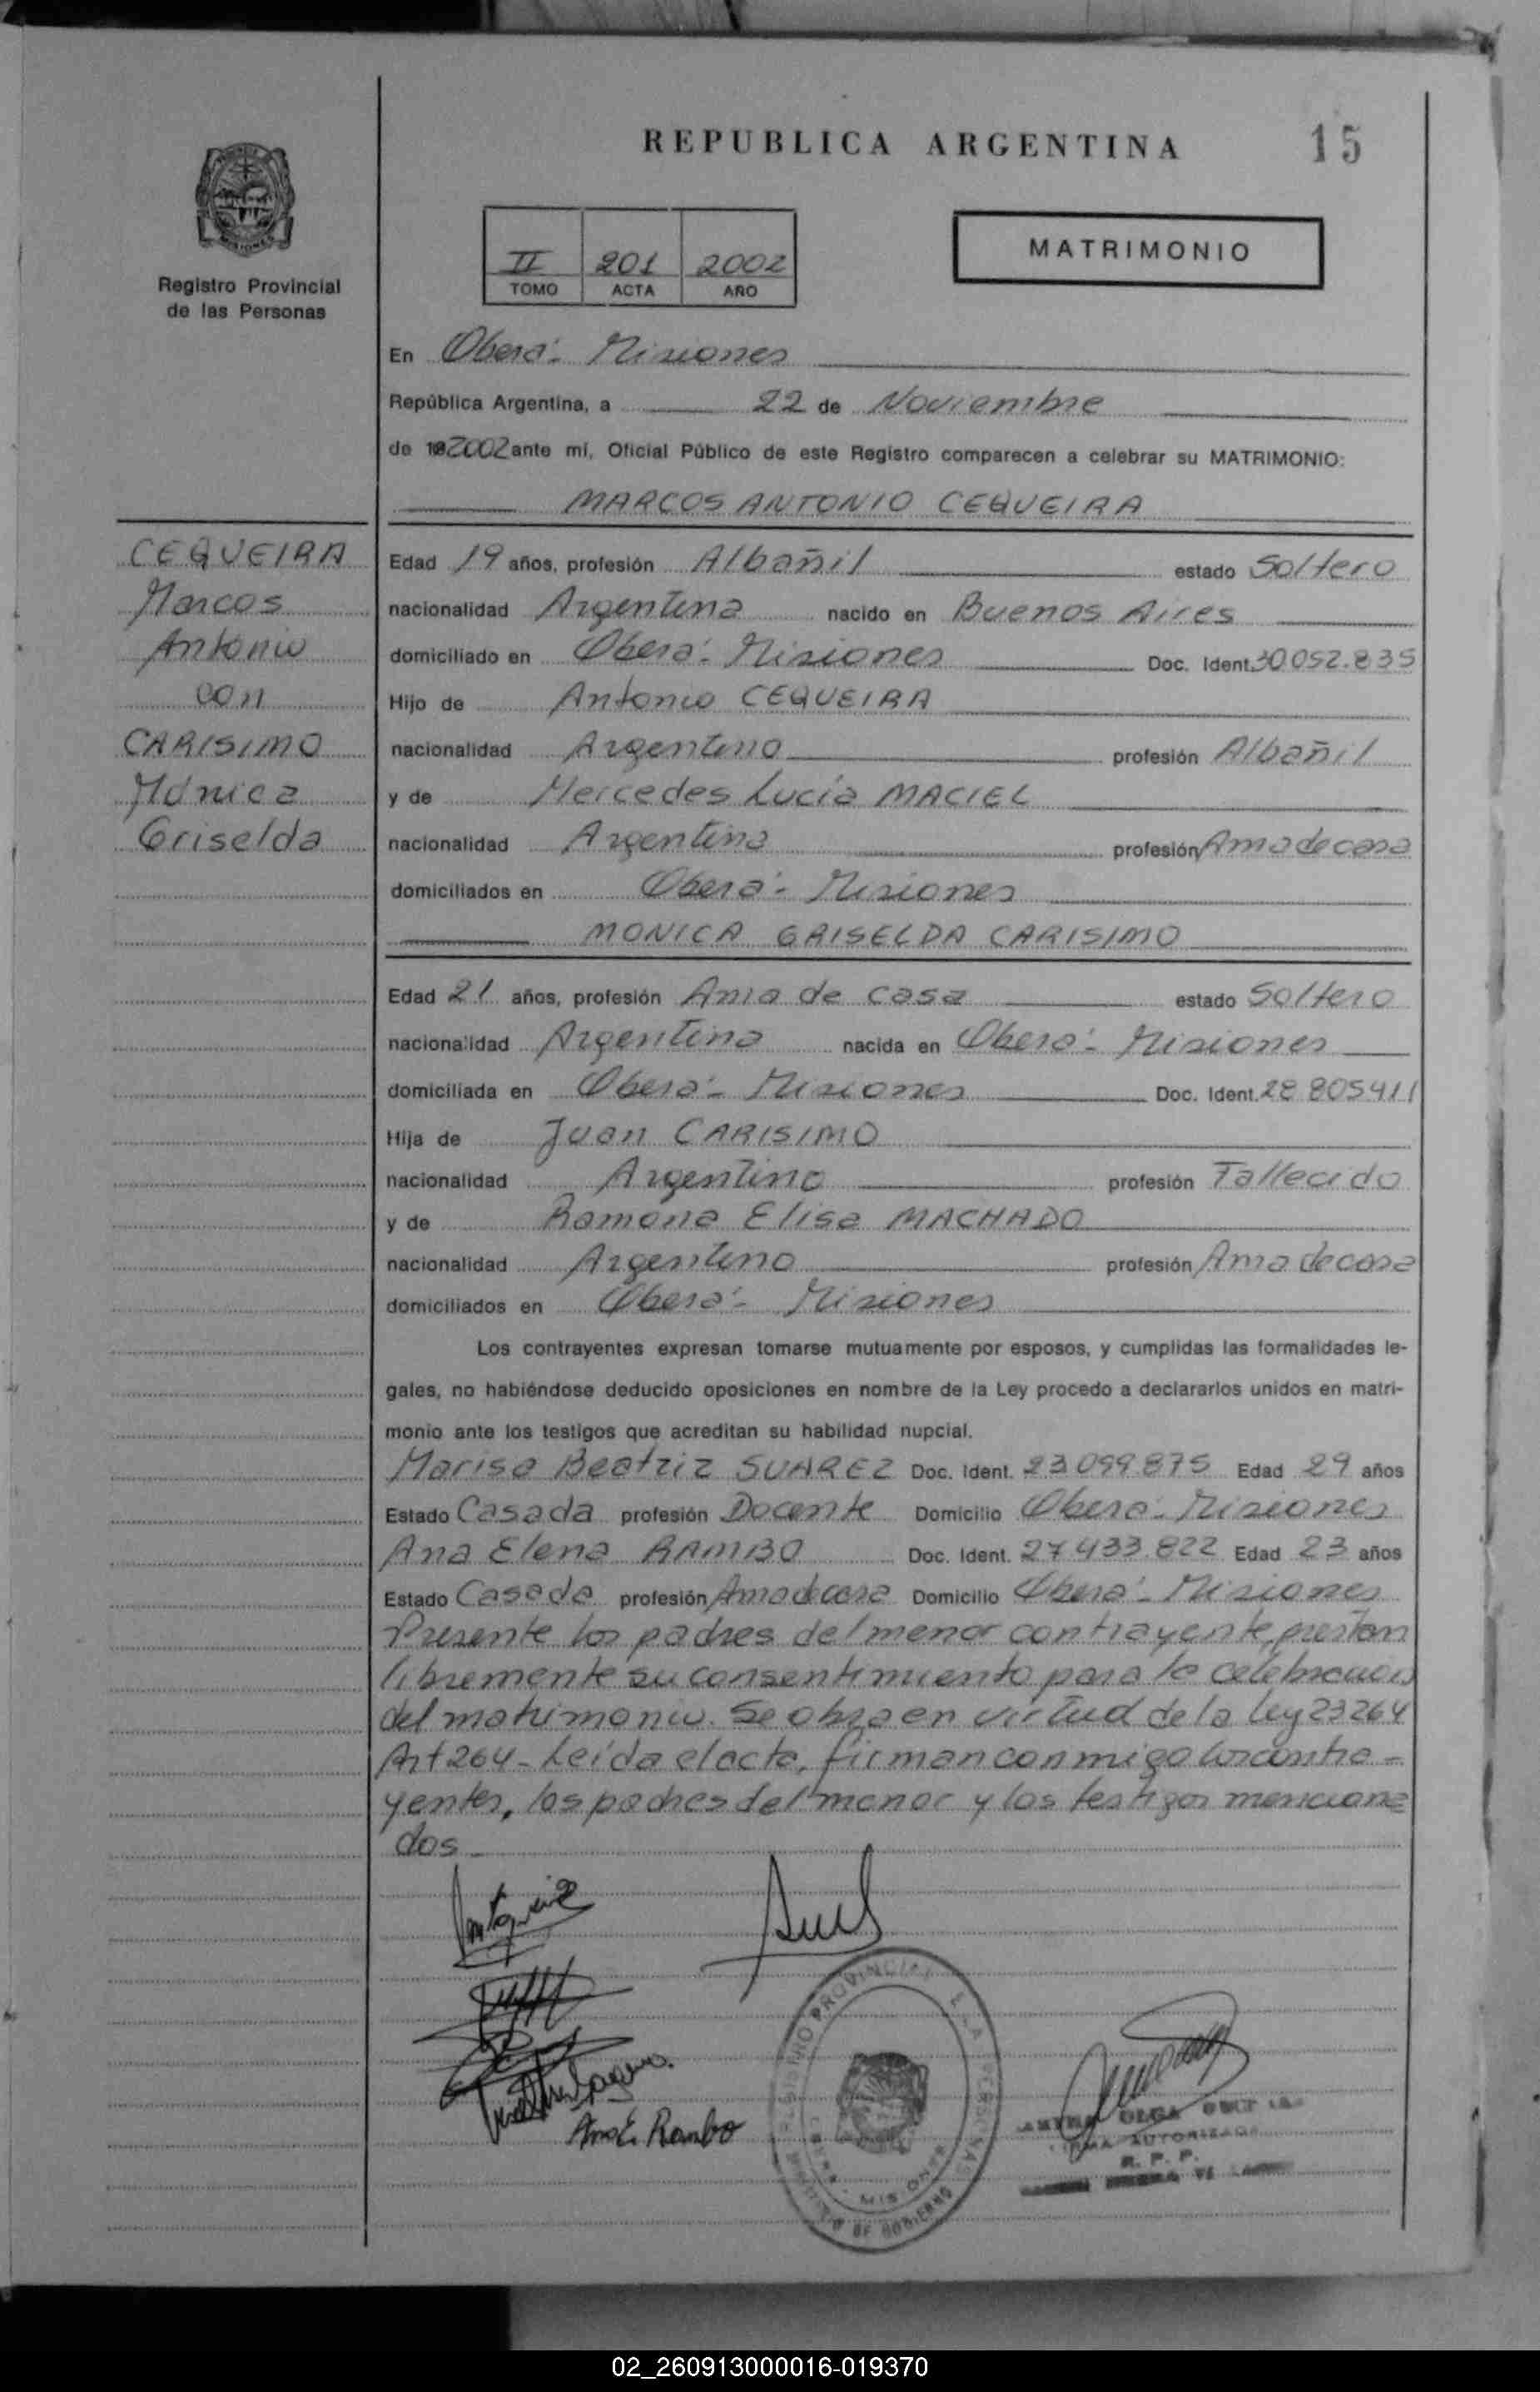 REPUBLICA ARGENTINA
15
Registro Provincial
de las Personas
II 201 2002
TOMO ACTA AÑO
MATRIMONIO
En Oberá - Misiones
República Argentina, a 22 de Noviembre
de 2002 ante mí, Oficial Público de este Registro comparecen a celebrar su MATRIMONIO:
MARCOS ANTONIO CEQUEIRA
CEQUEIRA
Marcos
Antonio
con
CARISIMO
Mónica
Griselda
Edad 19 años, profesión Albañil estado Soltero
nacionalidad Argentina nacido en Buenos Aires
domiciliado en Oberá - Misiones Doc. Ident. 30.052.835
Hijo de Antonio CEQUEIRA
nacionalidad Argentino profesión Albañil
y de Mercedes Lucía MACIEL
nacionalidad Argentina profesión Ama de casa
domiciliados en Oberá - Misiones
MONICA GRISELDA CARISIMO
Edad 21 años, profesión Ama de casa estado Soltero
nacionalidad Argentina nacida en Oberá - Misiones
domiciliada en Oberá - Misiones Doc. Ident. 28 805411
Hija de Juan CARISIMO
nacionalidad Argentino profesión Fallecido
y de Ramona Elisa MACHADO
nacionalidad Argentino profesión Ama de casa
domiciliados en Oberá - Misiones
Los contrayentes expresan tomarse mutuamente por esposos, y cumplidas las formalidades le-
gales, no habiéndose deducido oposiciones en nombre de la Ley procedo a declararlos unidos en matri-
monio ante los testigos que acreditan su habilidad nupcial.
Marisa Beatriz SUAREZ Doc. Ident. 23 099 875 Edad 29 años
Estado Casada profesión Docente Domicilio Oberá - Misiones
Ana Elena RAMBO Doc. Ident. 27 433.822 Edad 23 años
Estado Casada profesión Ama de casa Domicilio Oberá - Misiones
Presente los padres del menor contrayente, prestan
libremente su consentimiento para la celebracion
del matrimonio. Se obra en virtud de la ley 23264
Art 264 - Leída el acta, firman conmigo los contra-
yentes, los padres del menor y los testigos menciona
dos -
Ana E. Rambo
REGISTRO PROVINCIAL DE LAS PERSONAS
MINISTERIO DE GOBIERNO
OBERA - MISIONES
OLGA
FIRMA AUTORIZADA
R. P. P.
02_260913000016-019370